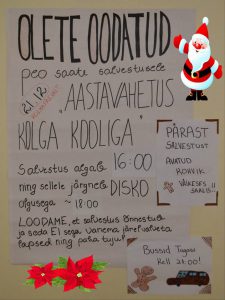 OLETE OODATUD
peo saate salvestusele
21.12
"AASTAVAHETUS
KOLGA KOOLIGA"
Salvestus algab 16:00
ning sellele järgneb DISKO
algusega ~ 18:00
LOODAME, et salvestus õnnestub
ja saba EI sega vanema järelvalveta
lapsed ning paha tuju!
PÄRAST
SALVESTUST
AVATUD
KOHVIK
VÄIKESES
SAALIS
Bussid Tagasi
kell 21:00!